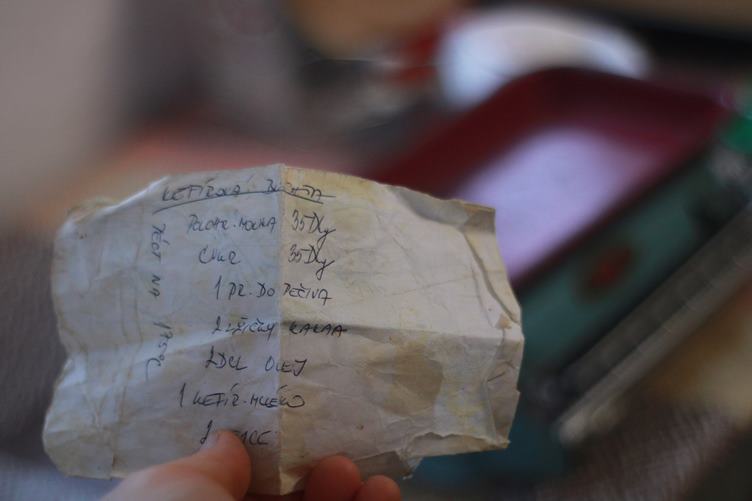 KEFÍROVÁ BUCHTA
POLOHR. MOUKA 35 Dkg
CUKR 35 Dkg
1 PR. DO PEČIVA
2 LŽIČKY KAKAA
2 DCL OLEJ
1 KEFÍR. MLÉKO
2
PÉCT NA 175°C